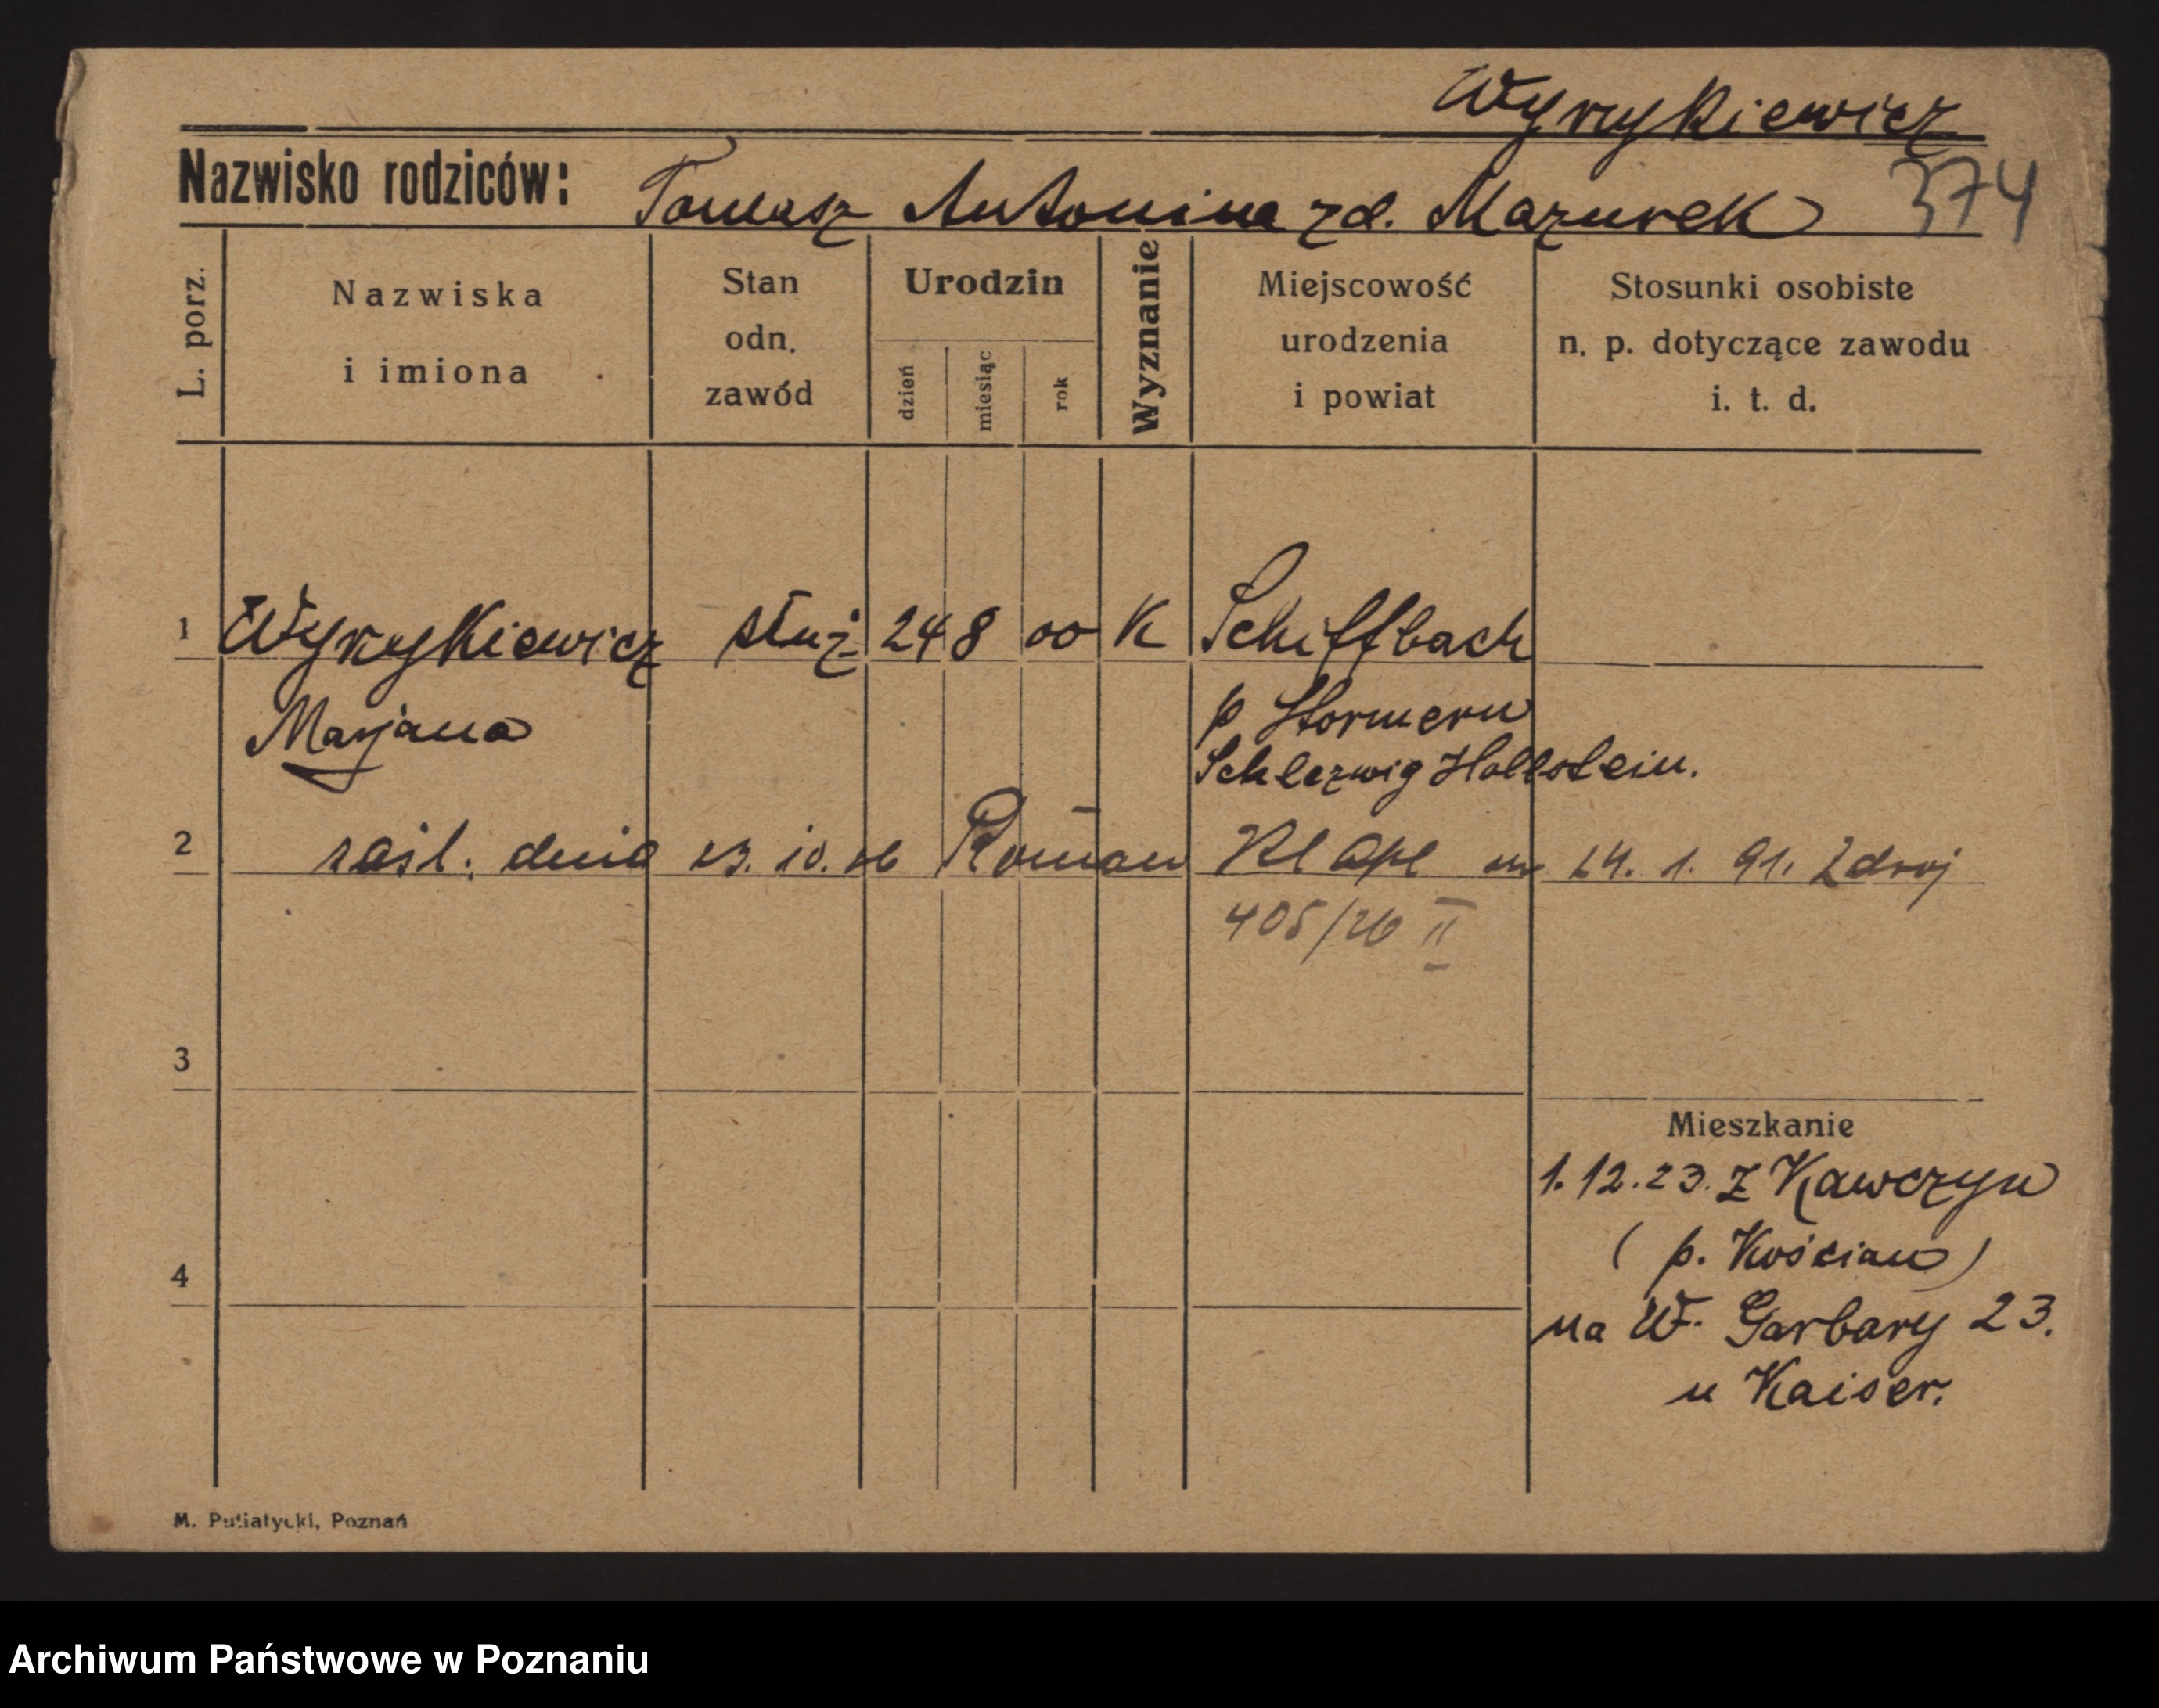 Wyrykiewicz
Nazwisko rodziców: Tomasz Antonina zd. Mazurek 374
L. porz. Nazwiska i imiona Stan odn. zawód Urodzin dzień miesiąc rok Wyznanie Miejscowość urodzenia i powiat Stosunki osobiste n. p. dotyczące zawodu i. t. d.
1 Wyrykiewicz służ. 24 8 00 K Schiffbach
Marjana p Stormern
Schlezwig Hollstein.
2 zaśl. dnia 23. 10. 26 Roman ur 24. 1. 91. Zdroj
405/26 II
3
Mieszkanie
1.12.23. z Kawczyn
(p. Kościan)
4
na W. Garbary 23.
u Kaiser.
M. Putiatycki, Poznań
Archiwum Państwowe w Poznaniu